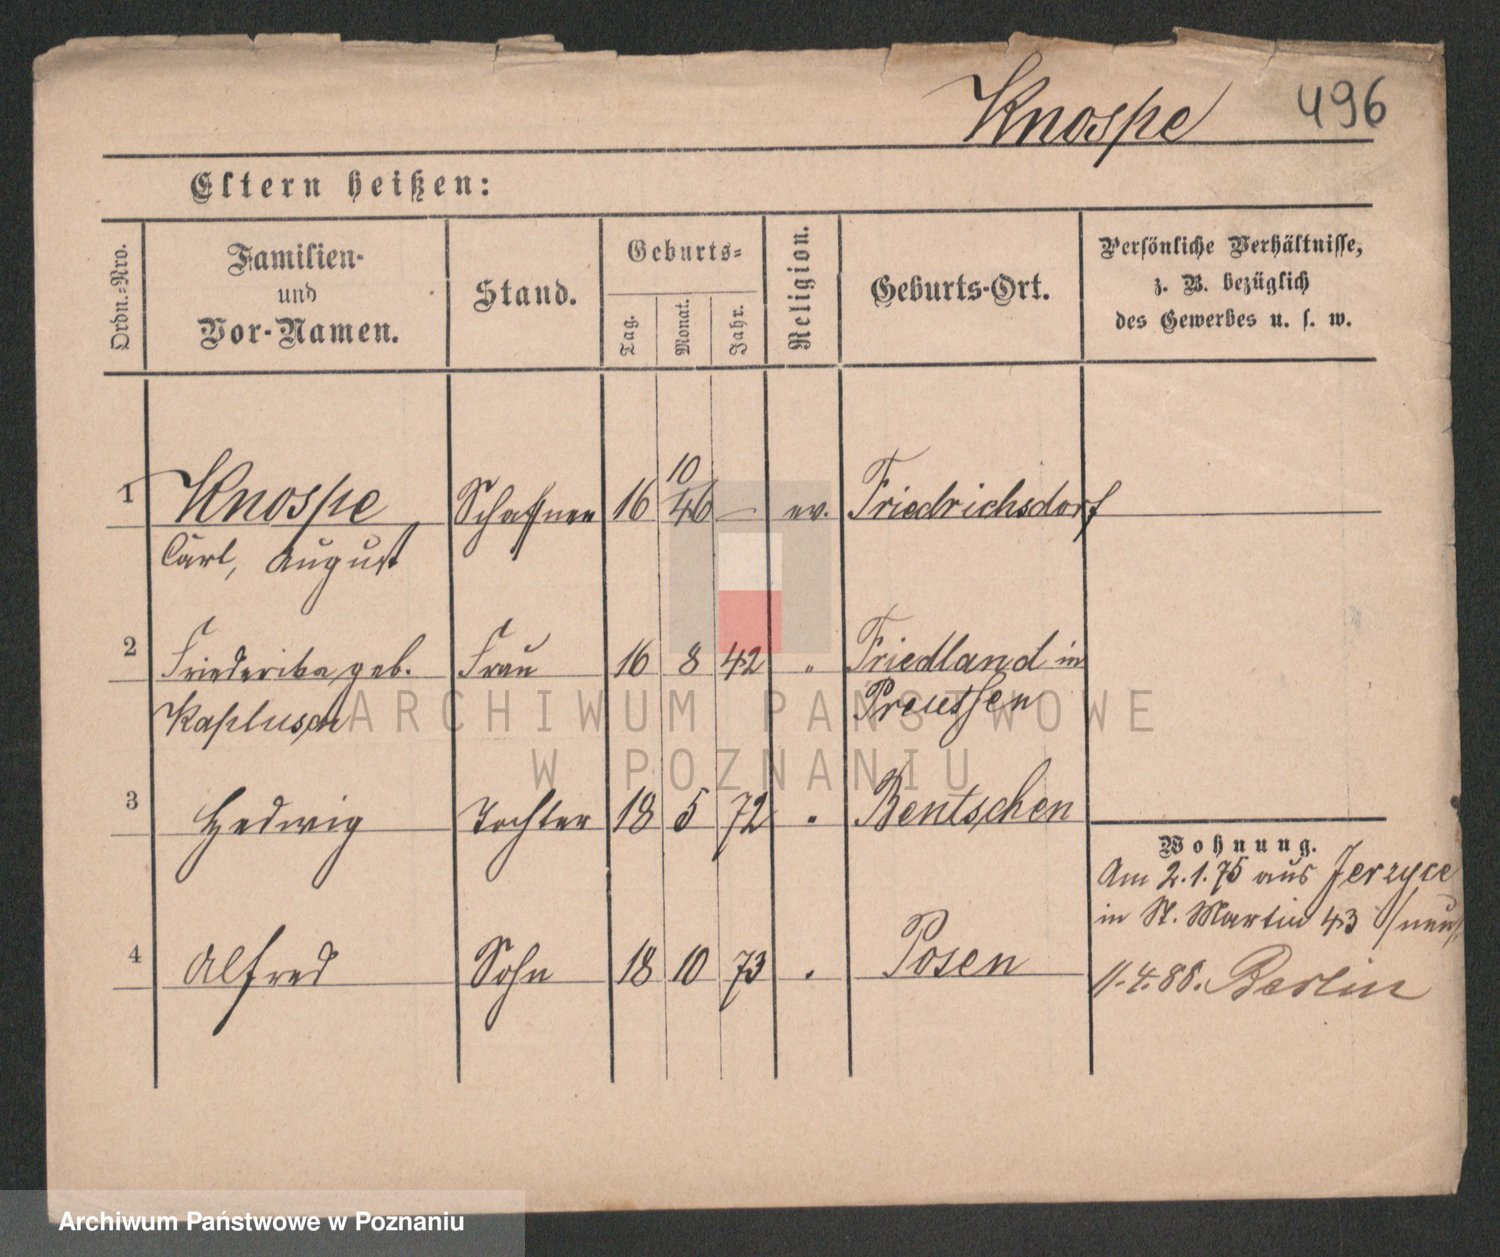 Knospe 496
Eltern heißen:
Ordn.-Nro.
Familien-
und
Vor-Namen.
Stand.
Geburts-
Tag.
Monat.
Jahr.
Religion.
Geburts-Ort.
Persönliche Verhältnisse,
z. B. bezüglich
des Gewerbes u. s. w.
10
1 Knospe Schaffner 16 46 — ev. Friedrichsdorf
Carl, August
2 Friederika geb. Frau 16 8 42 " Friedland in
Preußen
3 Hedwig Tochter 18 5 72 " Bentschen
Wohnung.
Am 2.1.75 aus Jerzyce
in St. Martin 43 /neu/
4 Alfred Sohn 18 10 73 " Posen
11.4.88. Berlin
ARCHIWUM PAŃSTWOWE
W POZNANIU
Archiwum Państwowe w Poznaniu